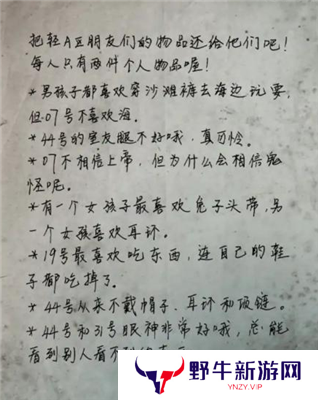 把轻A区朋友们的物品还给他们吧!
每人只有两件个人物品喔!
*男孩子都喜欢穿沙滩裤去海边玩耍,
但07号不喜欢海。
*44号的室友腿不好哦,真可怜。
*07不相信上帝,但为什么会相信鬼
怪呢。
*有一个女孩子最喜欢兔子头带,另
一个女孩喜欢耳环。
*19号最喜欢吃东西,连自己的鞋
子都吃掉了。
*44号从来不戴帽子、耳环和项链。
*44号和31号眼神非常好哦,总能
看到别人看不到的东西
野牛新游网
YNZY.VIP